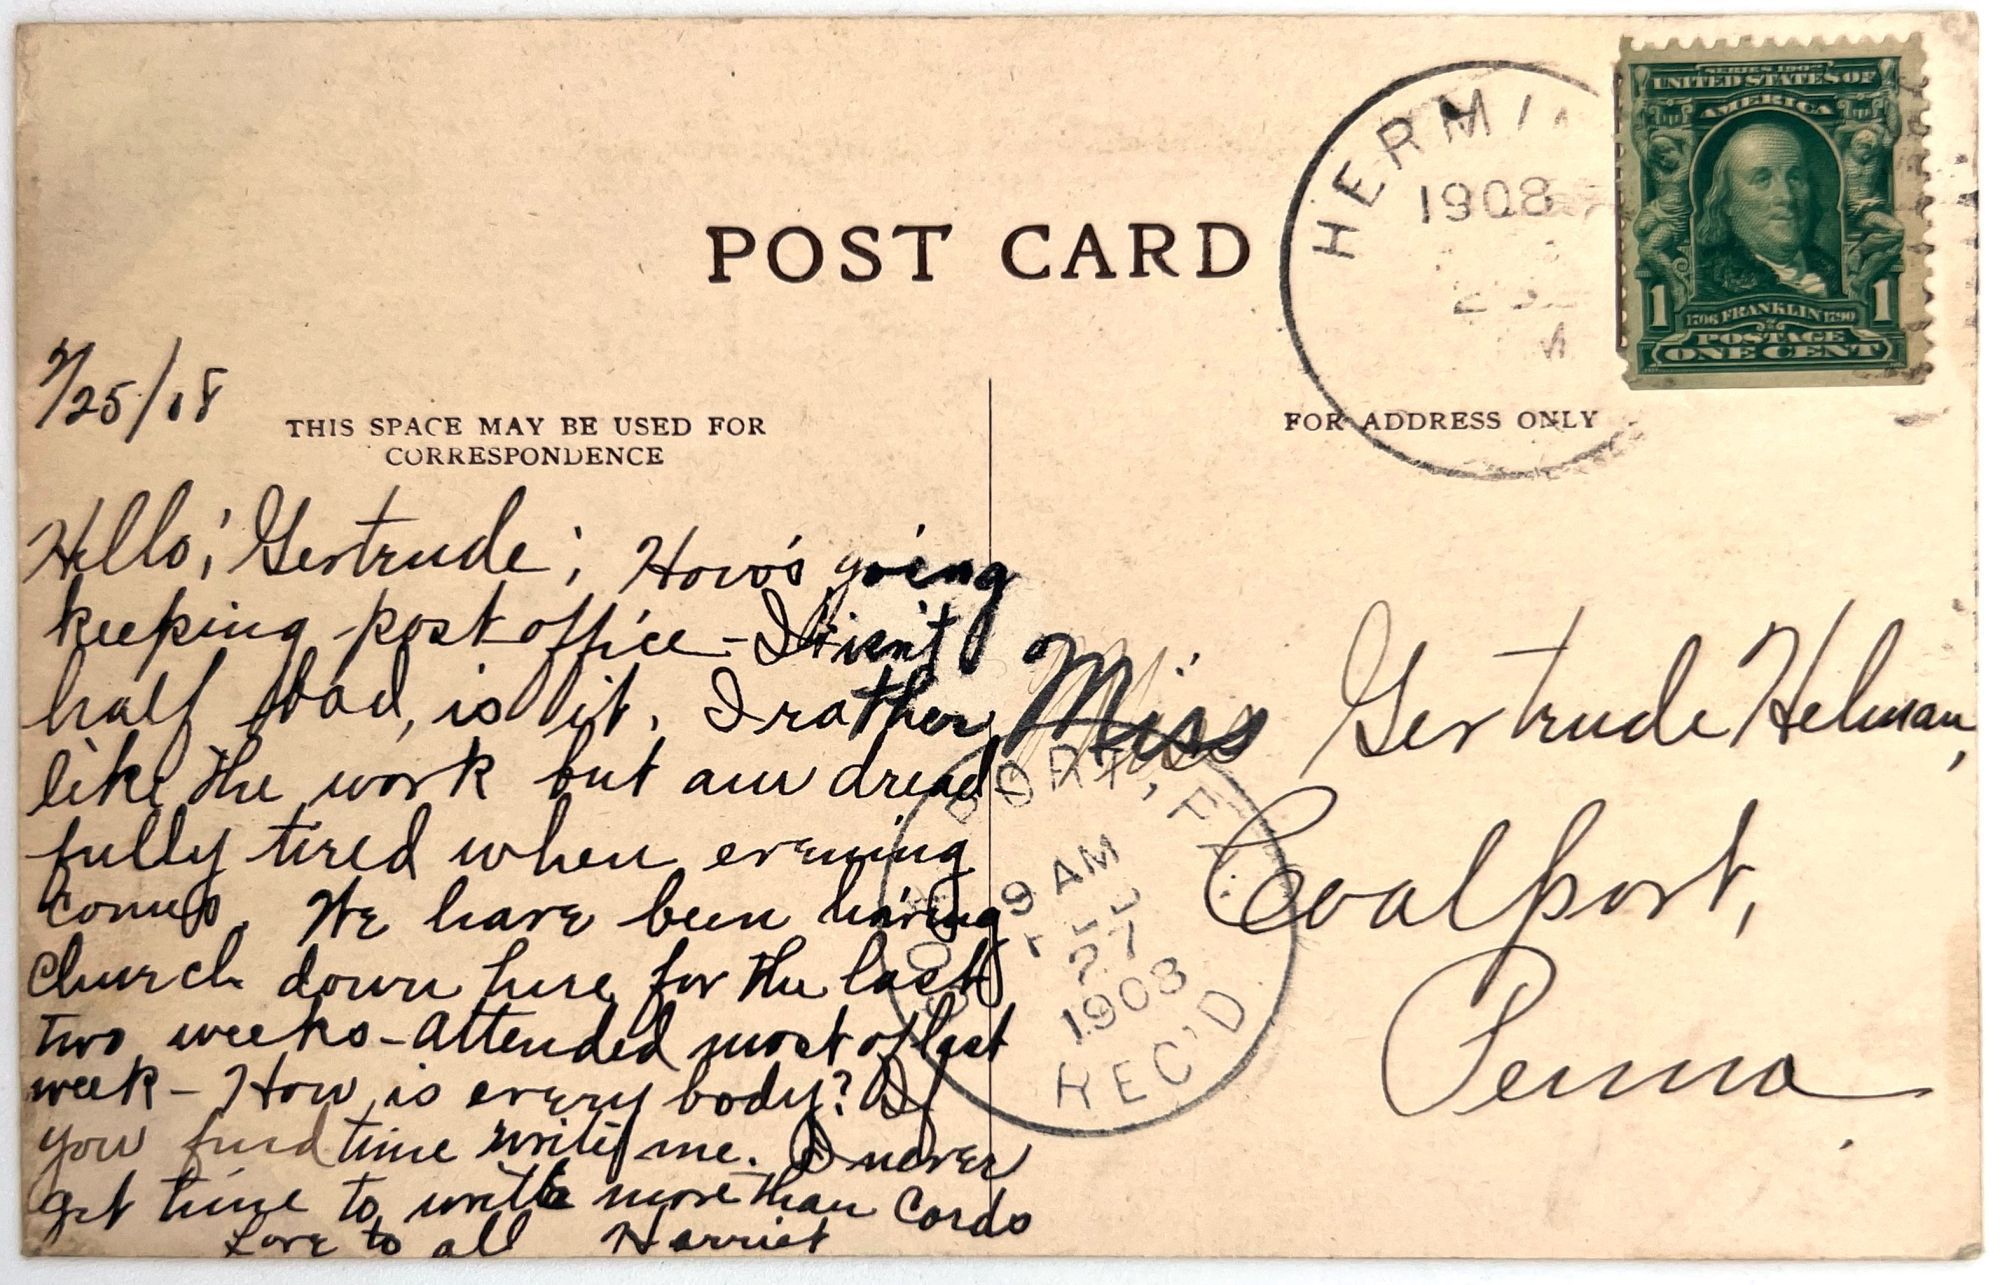 POST CARD
HERMI
1908
SERIES 1902
UNITED STATES OF
AMERICA
1 1
1706 FRANKLIN 1790
POSTAGE
ONE CENT
2/25/08
THIS SPACE MAY BE USED FOR
CORRESPONDENCE
FOR ADDRESS ONLY
Hello, Gertrude; How's going
keeping post office - It isn't
half bad, is it. I rather
like the work but am dread-
fully tired when evening
comes. We have been having
church down here for the last
two weeks - attended most of last
week - How is every body? If
you find time write me. I never
get time to write more than cards
Love to all Harriet
Miss Gertrude Helman,
Coalport,
Penna.
PORT, PA.
9 AM
27
1908
REC'D